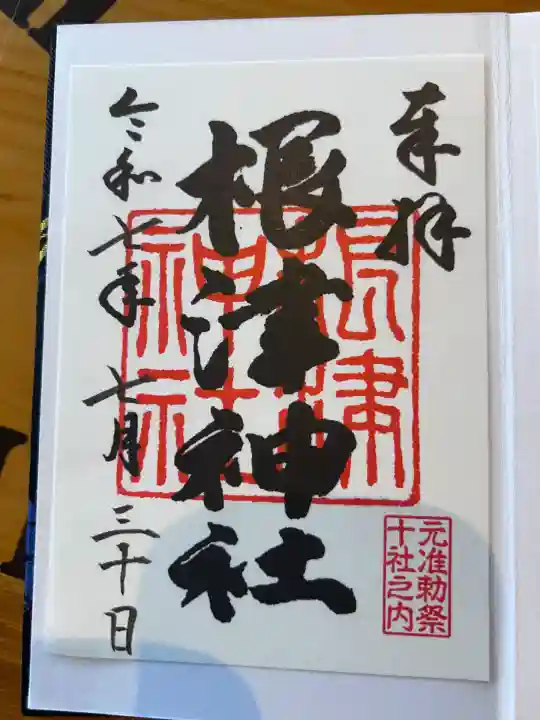 奉拝
根津神社
令和七年 七月 三十日
根津
神社
元准勅祭
十社之内